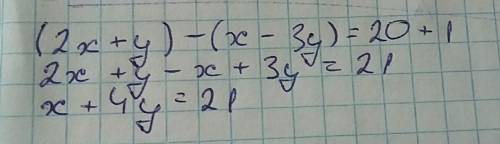 (2x+y)-(x-3y)=20+1
2x+y-x+3y=21
x+4y=21